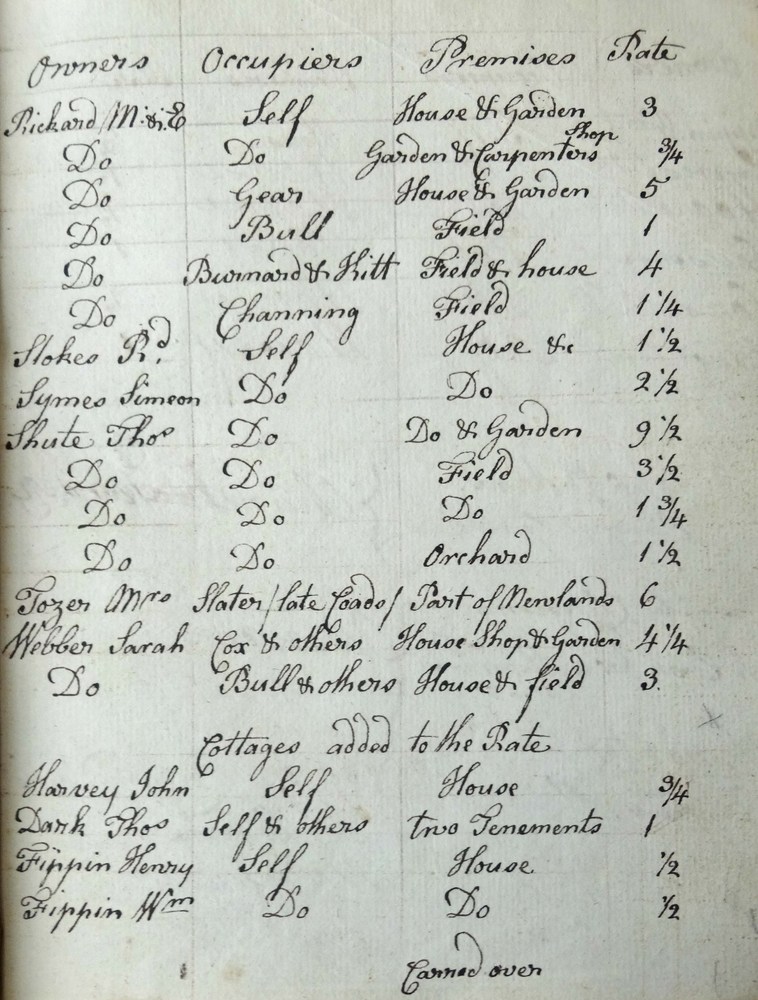 Owners Occupiers Premises Rate
Rickard M. & E Self House & Garden 3
Do Do Garden & Carpenters Shop 3/4
Do Gear House & Garden 5
Do Bull Field 1
Do Burnard & Hitt Field & house 4
Do Channing Field 1 1/4
Stokes Rd. Self House &c 1 1/2
Symes Simeon Do Do 2 1/2
Shute Thos Do Do & Garden 9 1/2
Do Do Field 3 1/2
Do Do Do 1 3/4
Do Do Orchard 1 1/2
Tozer Mrs Slater /late Coads/ Part of Newlands 6
Webber Sarah Cox & others House Shop & Garden 4 1/4
Do Bull & others House & field 3.
Cottages added to the Rate
Harvey John Self House 3/4
Dark Thos Self & others two Tenements 1
Fippin Henry Self House 1/2
Fippin Wm Do Do 1/2
Carried over